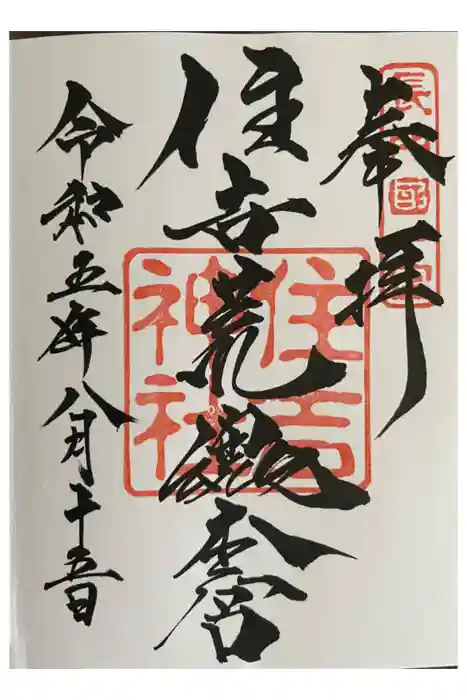 奉拝
長門國一宮
住吉荒魂本宮
住吉神社
令和五年八月十五日